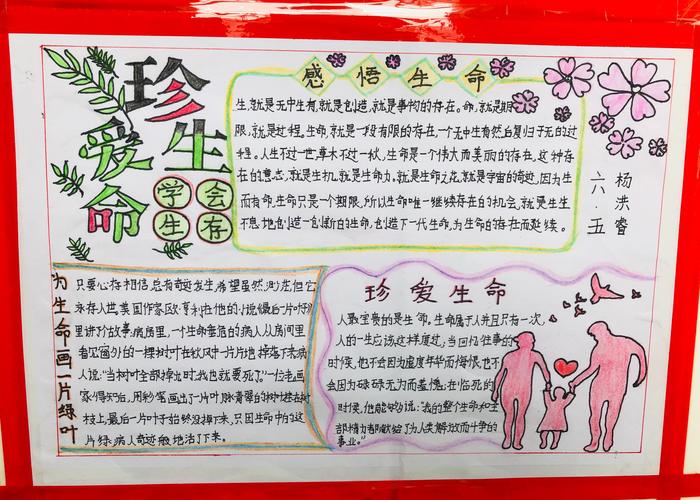 珍爱生命
学会
生存
感悟生命
生,就是无中生有,就是创造,就是事物的存在。命,就是期
限,就是过程。生命,就是一段有限的存在,一个无中生有然后复归于无的过
程。人生不过一世,草木不过一秋,生命是一个伟大而美丽的存在,这种存
在的意志,就是生机,就是生命力。就是生命之花,就是宇宙的奇迹,因为生
而有命,生命只是一个期限,所以生命唯一继续存在的机会,就是生生
不息地创造一创新的生命,创造下一代生命,为生命的存在而延续。
六·五
杨洪睿
为生命画一片绿叶
只要心存相信,总有奇迹发生,希望虽然渺茫,但它
永存人世,美国作家欧·亨利在他的小说《最后一片叶》
里讲个故事,病房里,一个生命垂危的病人从房间里
看见窗外的一棵树叶在秋风中一片片地掉落下来病
人说:“当树叶全部掉光时,我也就要死了。”一位老画
家得知后,用彩笔画出了一片叶脉青翠的树叶挂在树
枝上,最后一片叶子始终没掉下来,只因生命中的这
片绿,病人奇迹般地活了下来。
珍爱生命
人最宝贵的是生命。生命属于人并且只有一次,
人的一生应该这样度过:当回忆往事的
时候,他不会因为虚度年华而悔恨,也不
会因为碌碌无为而羞愧;在临死的
时候,他能够说:“我的整个生命和全
部精力都献给了为人类解放而斗争的
事业。”